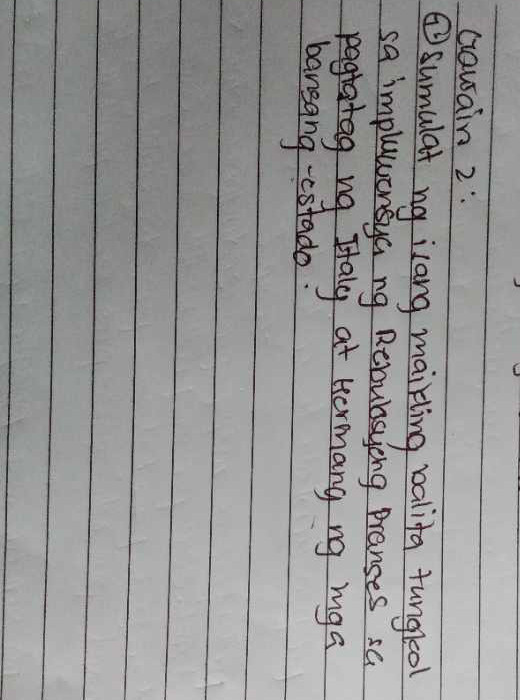 Gawain 2:
① Sumulat ng isang maikling balita tungkol
sa impluwensya ng Rebulusyong Pranses sa
pagtatag ng Italy at Germany ng mga
bansang-estado.